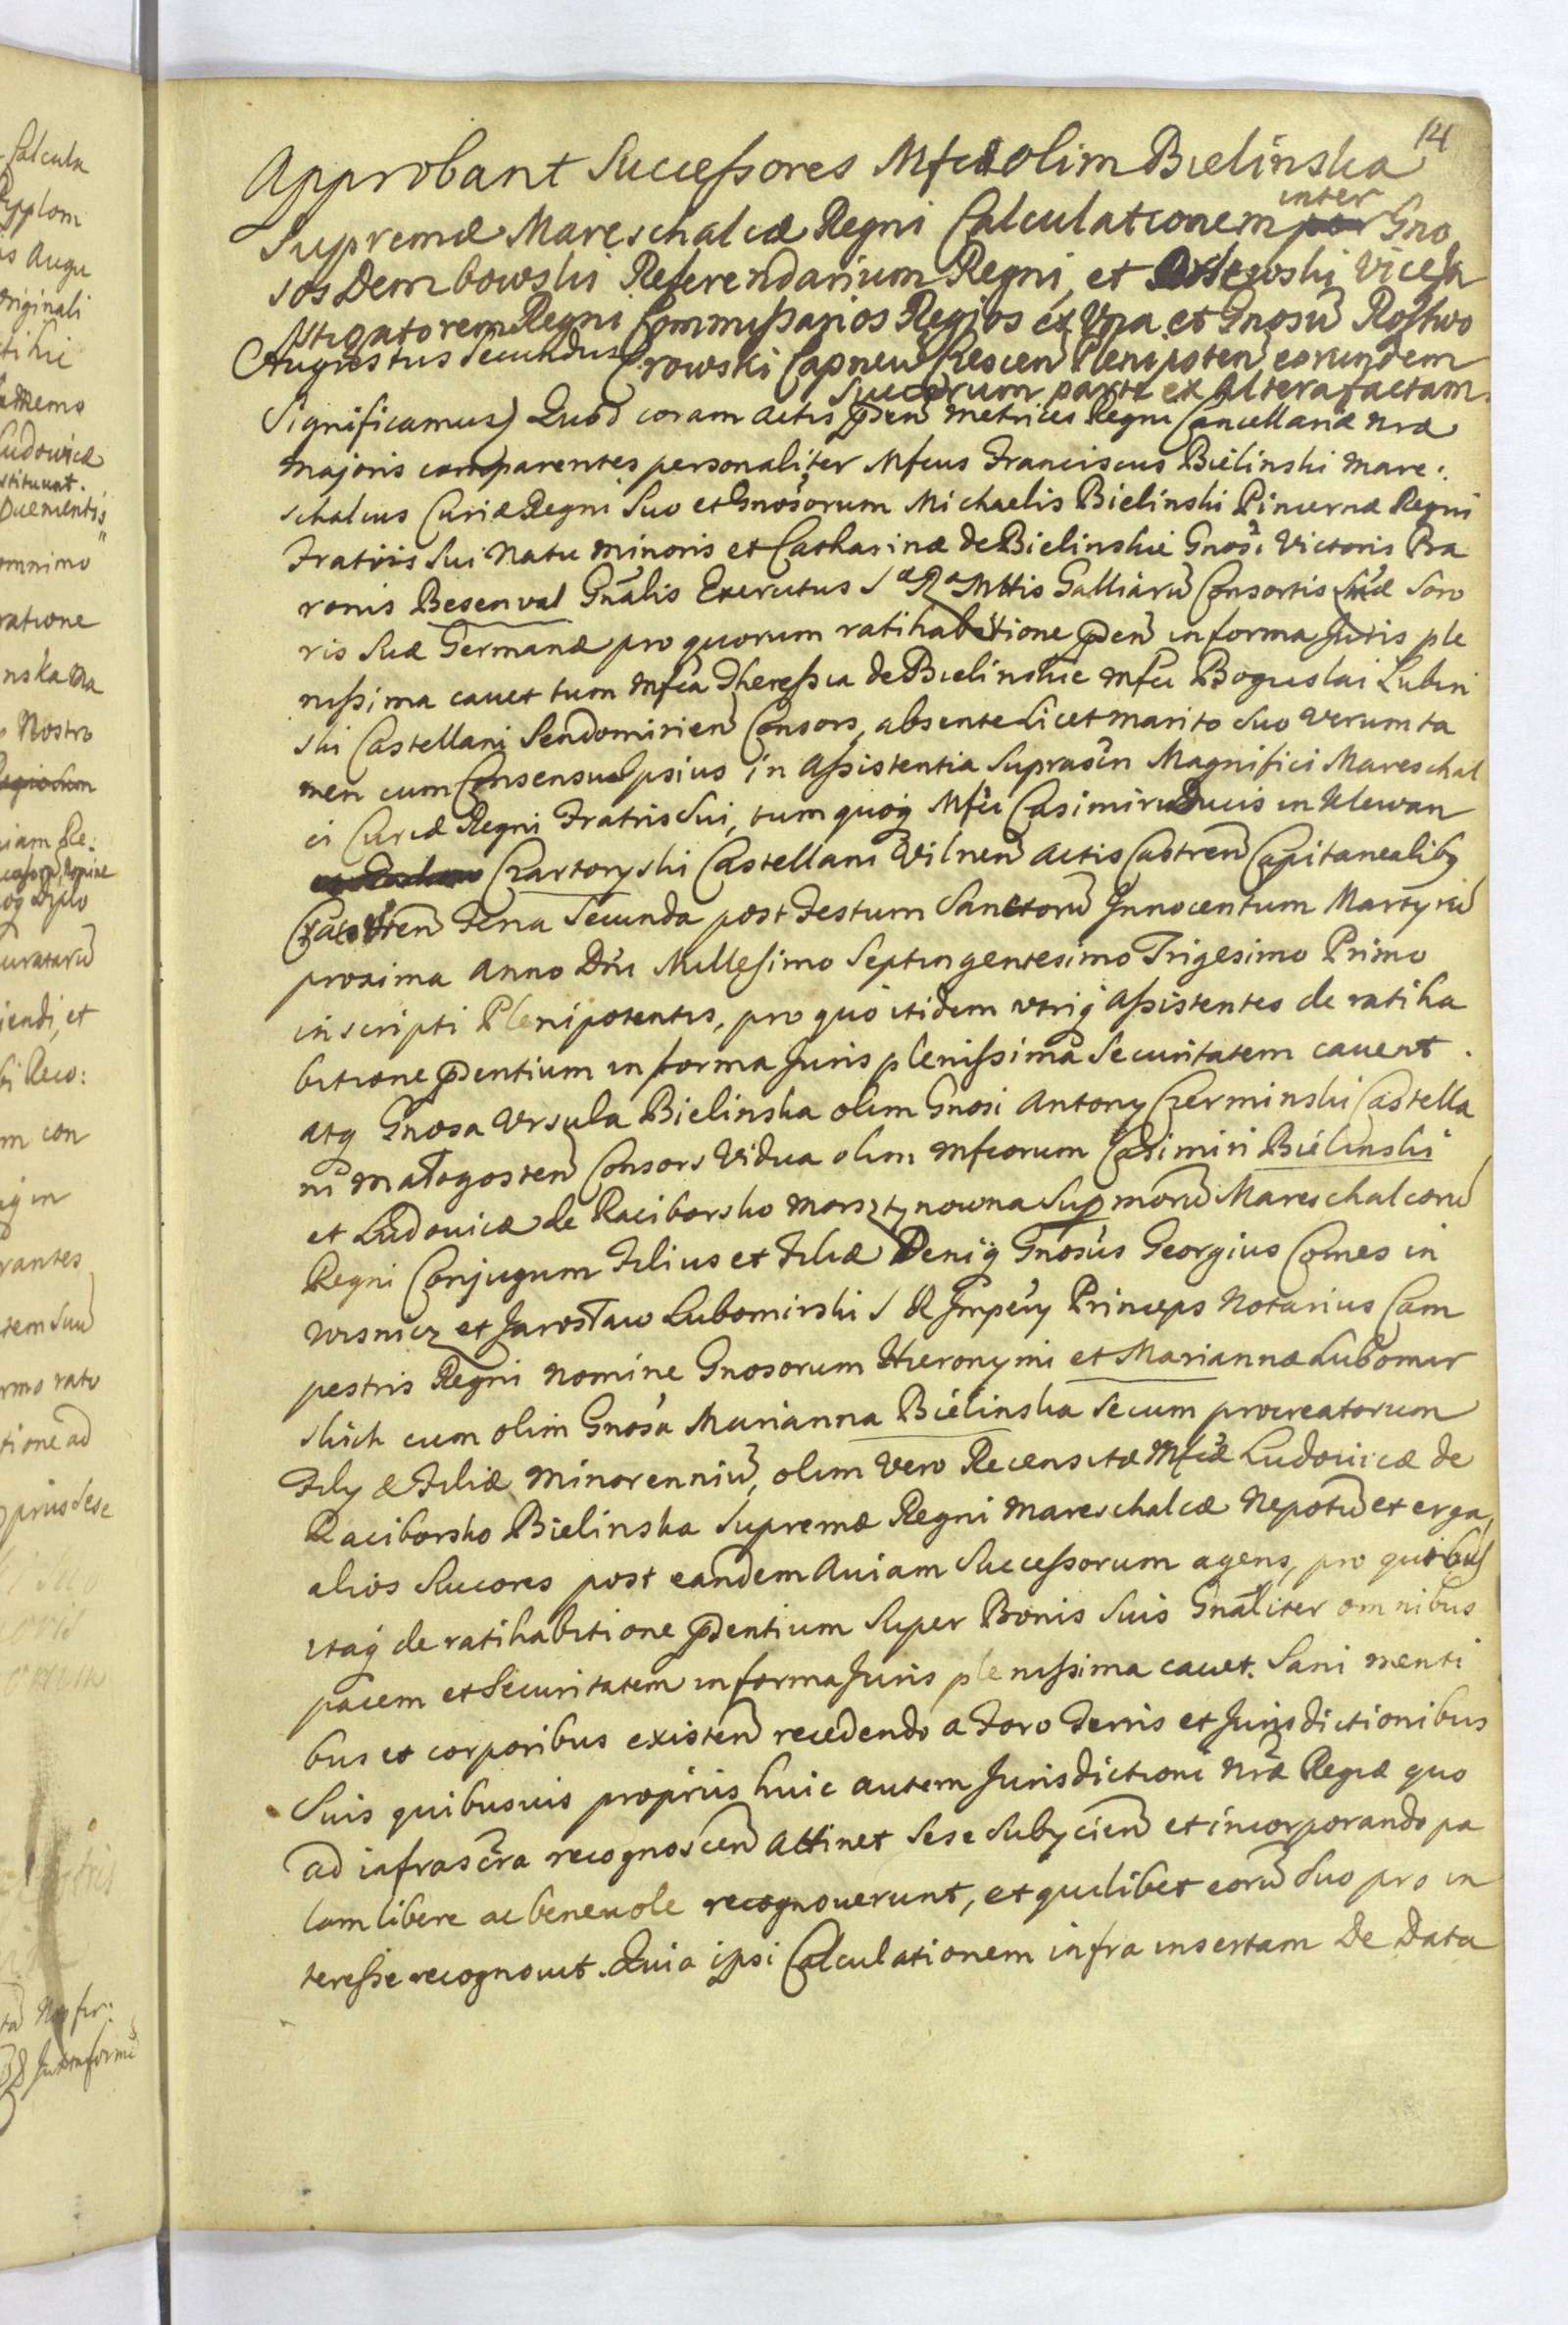 14
Approbant Successores Mfcæ olim Bielinska
Supremæ Mareschalcæ Regni Calculationem inter Gno
sos Dembowski Referendarium Regni, et Vicesin
stigatorem Regni Commissarios Regios ex Una et Gnosū Rostwo
rowski Capneū Plenipoten eorundem
Succorum parte ex Altera factam.
Augustus Secundus
Significamus) Quod coram actis pden Metrices Regni Cancellariæ nræ
majoris comparentes personaliter Mfcus Franciscus Bielinski Mare:
schalcus Curiæ Regni Suo et Gnosorum Michaelis Bielinski Pincernæ Regni
Fratris sui Natu minoris et Catharinæ de Bielinskie Gnosi Victoris Ba
ronis Besenval Gnalis Exercitus Sa Ra Mttis Galliarū Consortis Suæ Soro
ris suæ Germanæ pro quorum ratihabitione pden in forma Juris ple
nissima cavet tum Mfca Theressia de Bielinskie Mfci Boguslai Lubin
ski Castellani Sendomirien Consors, absente licet marito suo verum ta
men cum Consensu Ipsius in Assistentia Suprascrin Magnifici Mareschal
ci Curiæ Regni Fratris Sui, tum quoq Mfci Casimiri Ducis in Klewan
Czartoryski Castellani Vilnen actis Castren Capitanealibq
Feria Secunda post Festum Sanctorū Innocentum Martyrū
proxima Anno Dni Millesimo Septingentesimo Trigesimo Primo
inscripti Plenipotentis, pro quo itidem utriq assistentes de ratiha
bitione pdentium in forma Juris plenissima Securitatem cavent.
atq Gnosa Ursula Bielinska olim Gnosi Antony Czerminski Castella
ni Małogosten Consors Vidua olim Mfcorum Casimiri Bielinski
et Ludovicæ de Raciborsko Morsztynowna Supmorū Mareschalcorū
Regni Conjugum Filius et Filiæ Deniq Gnosus Georgius Comes in
Wisnicz et Jarosław Lubomirski S R Impery Princeps Notarius Cam
pestris Regni nomine Gnosorum Hieronymi et Mariannæ Lubomir
skich cum olim Gnosa Marianna Bielinska secum procreatorum
Fily æ Filiæ minorenniū, olim vero Recensitæ Mfcæ Ludovicæ de
Raciborsko Bielinska Supremæ Regni Mareschalcæ Nepotū et erga
alios Succores post eandem Aviam Successorum agens, pro quibus
itaq de ratihabitione pdentium super Bonis suis Gnaliter omnibus
pacem et Securitatem in forma Juris plenissima cavet. Sani menti
bus et corporibus existen recedendo a Foro Terris et Jurisdictionibus
Suis quibusvis proprys huic autem Jurisdictioni nræ Regiæ quo
ad infrascra recognoscen attinet sese subycien et incorporando pa
lam libere ac benevole recognoverunt, et quilibet eorū suo pro in
teresse recognovit. Quia ipsi Calculationem infra insertam de Data
Calcula
is Augu
originali
Ludowicæ
stituunt.
omnimo
ratione
nska
Nostro
iendi, et
m con
rantes
tem suū
rmo ratu
tione ad
prius sese